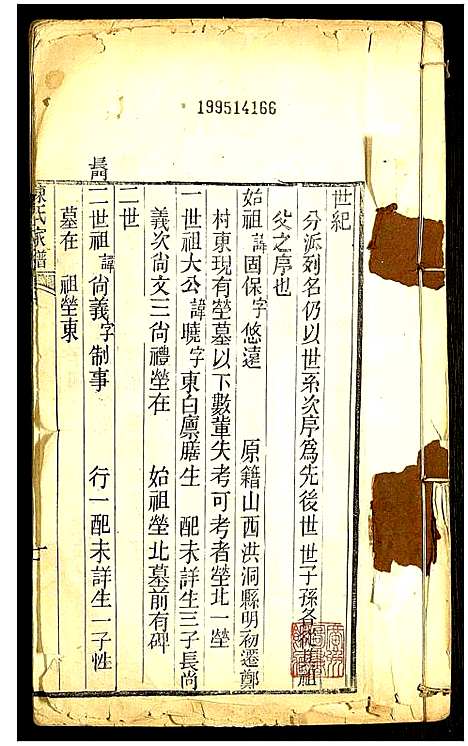 199514166
世紀
分派列名仍以世系次序爲先後世世子孫各從其祖
父之序也
始祖諱固保字悠遠 原籍山西洪洞縣明初遷鄭
村東現有塋墓以下數輩失考可考者塋北一塋
一世祖大公諱曉字東白廪膳生 配未詳生三子長尚
義次尚文三尚禮塋在 始祖塋北墓前有碑
二世
長門 二世祖諱尚義字制事 行一配未詳生一子性
墓在 祖塋東
陳氏家譜